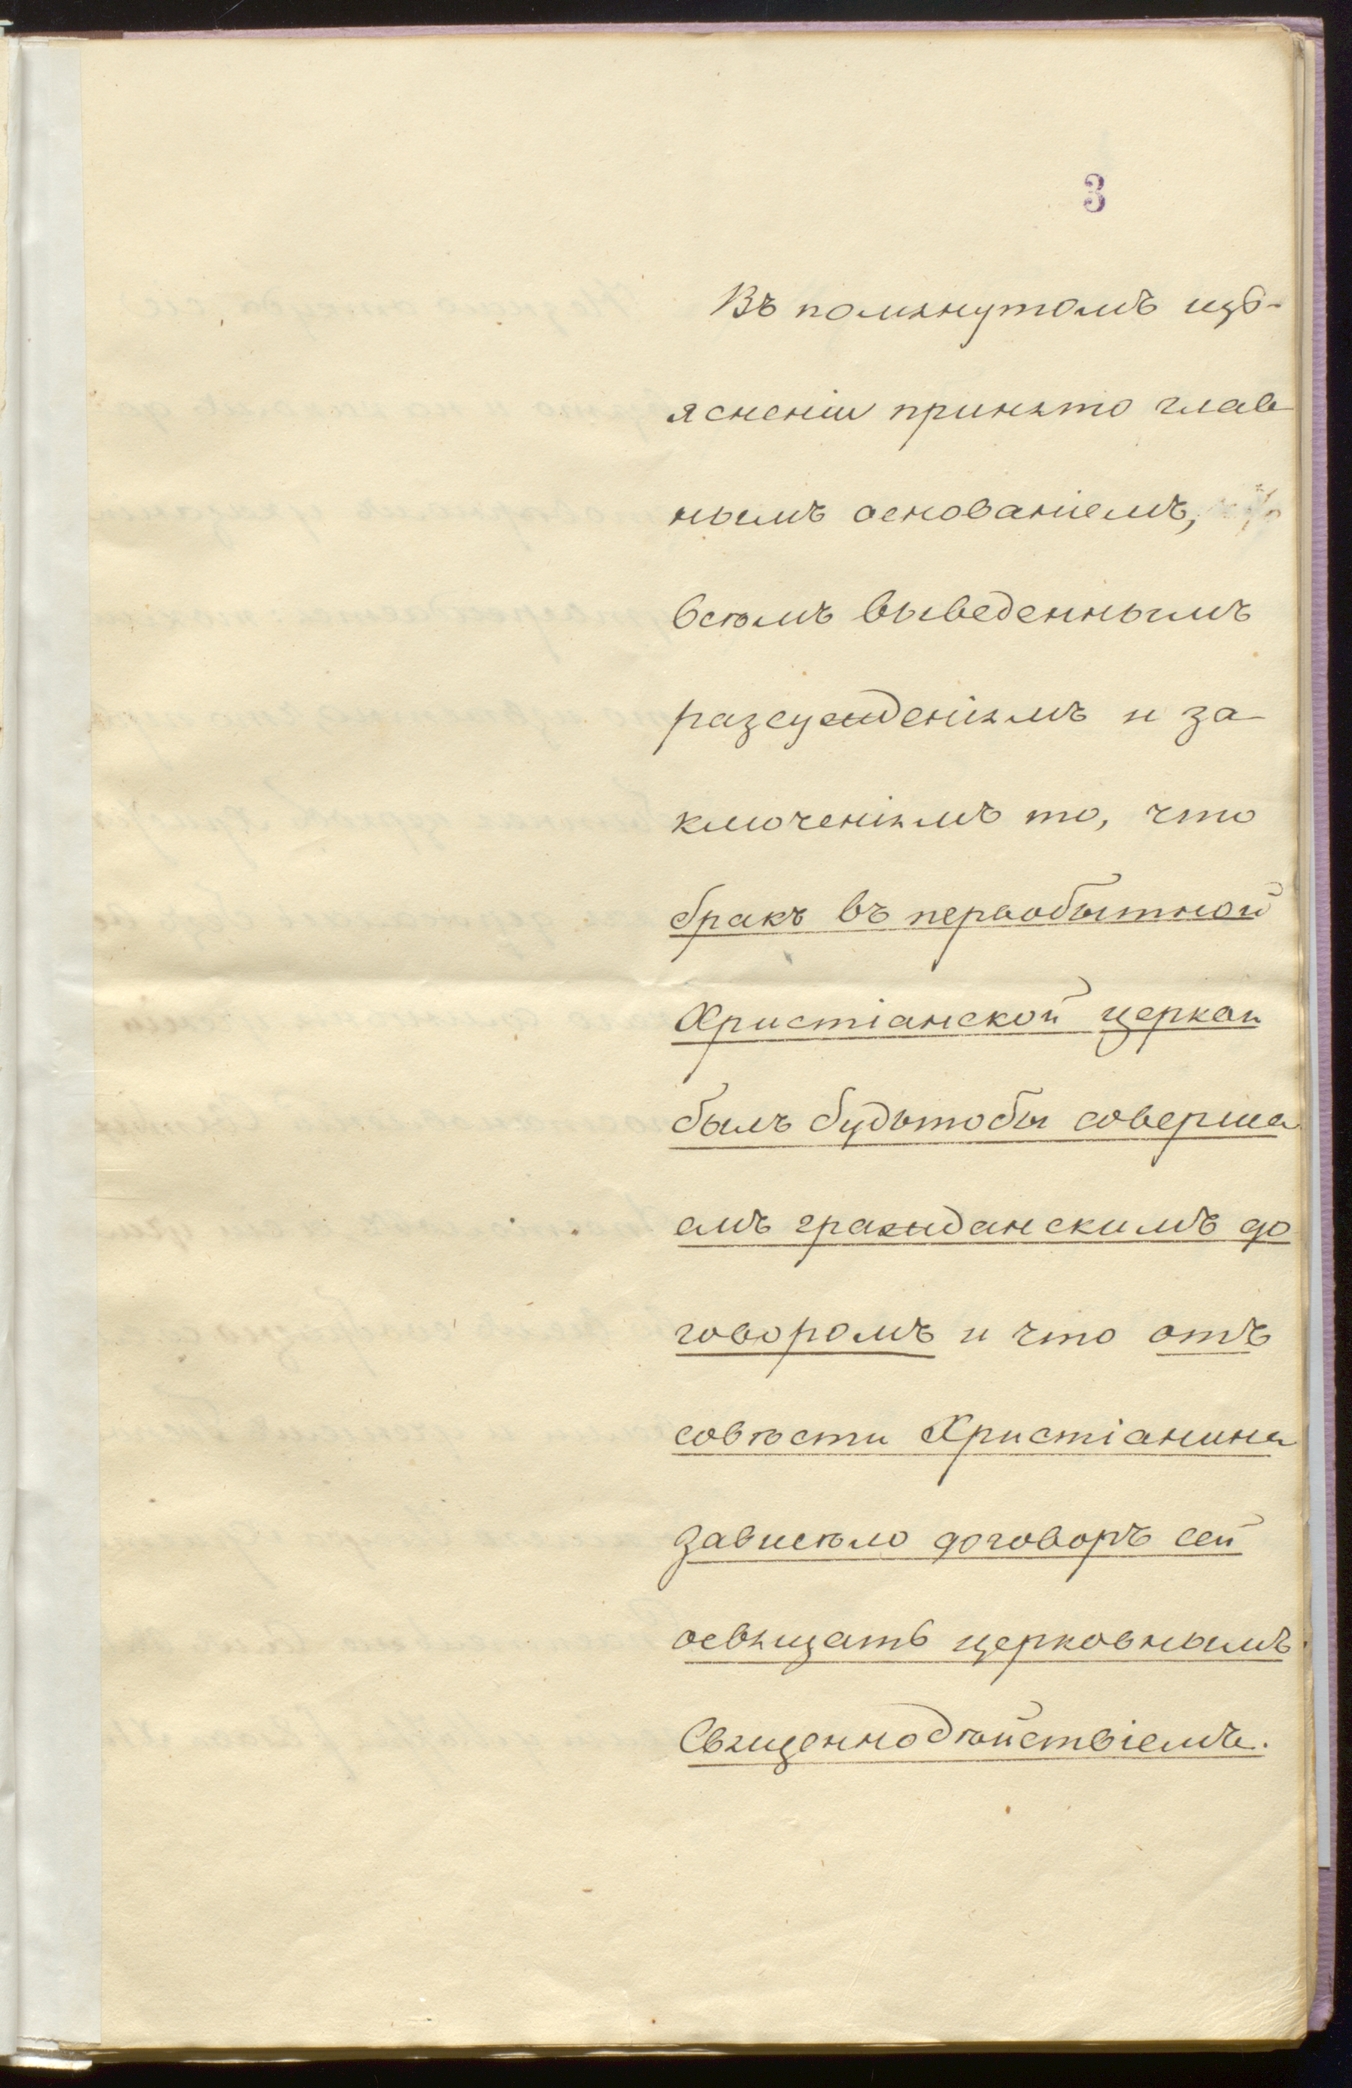 3
Въ помянутомъ изъ-
ясненіи принято глав
нымъ основаніемъ,
всѣмъ выведеннымъ
разсужденіямъ и за
ключеніямъ то, что
бракъ въ первобытной
Христіанской церкви
былъ будьтобы соверша
емъ гражданскимъ до
говоромъ и что отъ
совѣсти Христіанина
зависѣло договоръ сей
освящать церковнымъ
Священнодѣйствіемъ.